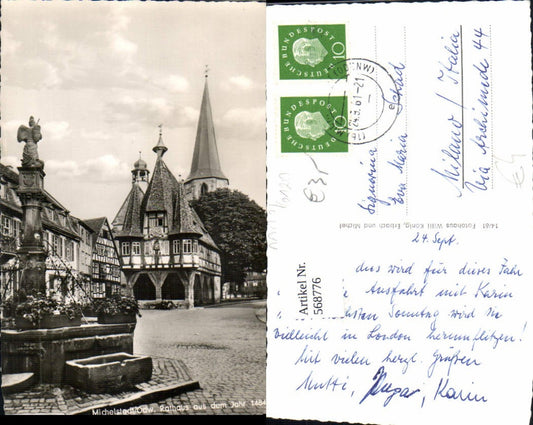 Michelstadt/Odw. Rathaus aus dem Jahr 1484
DEUTSCHE BUNDESPOST
10
DEUTSCHE BUNDESPOST
10
24.9.61-21
Signorina
Eva Maria
Milano / Italia
Via Archimede 44
1481 Fotohaus Willi König, Erbach und Michel
Artikel Nr.
568776
24. Sept.
dies wird für dieses Jahr
Ausfahrt mit Karin
Sonntag wird sie
vielleicht in London herumflitzen!
Mit vielen herzl. Grüßen
Mutti, Karin